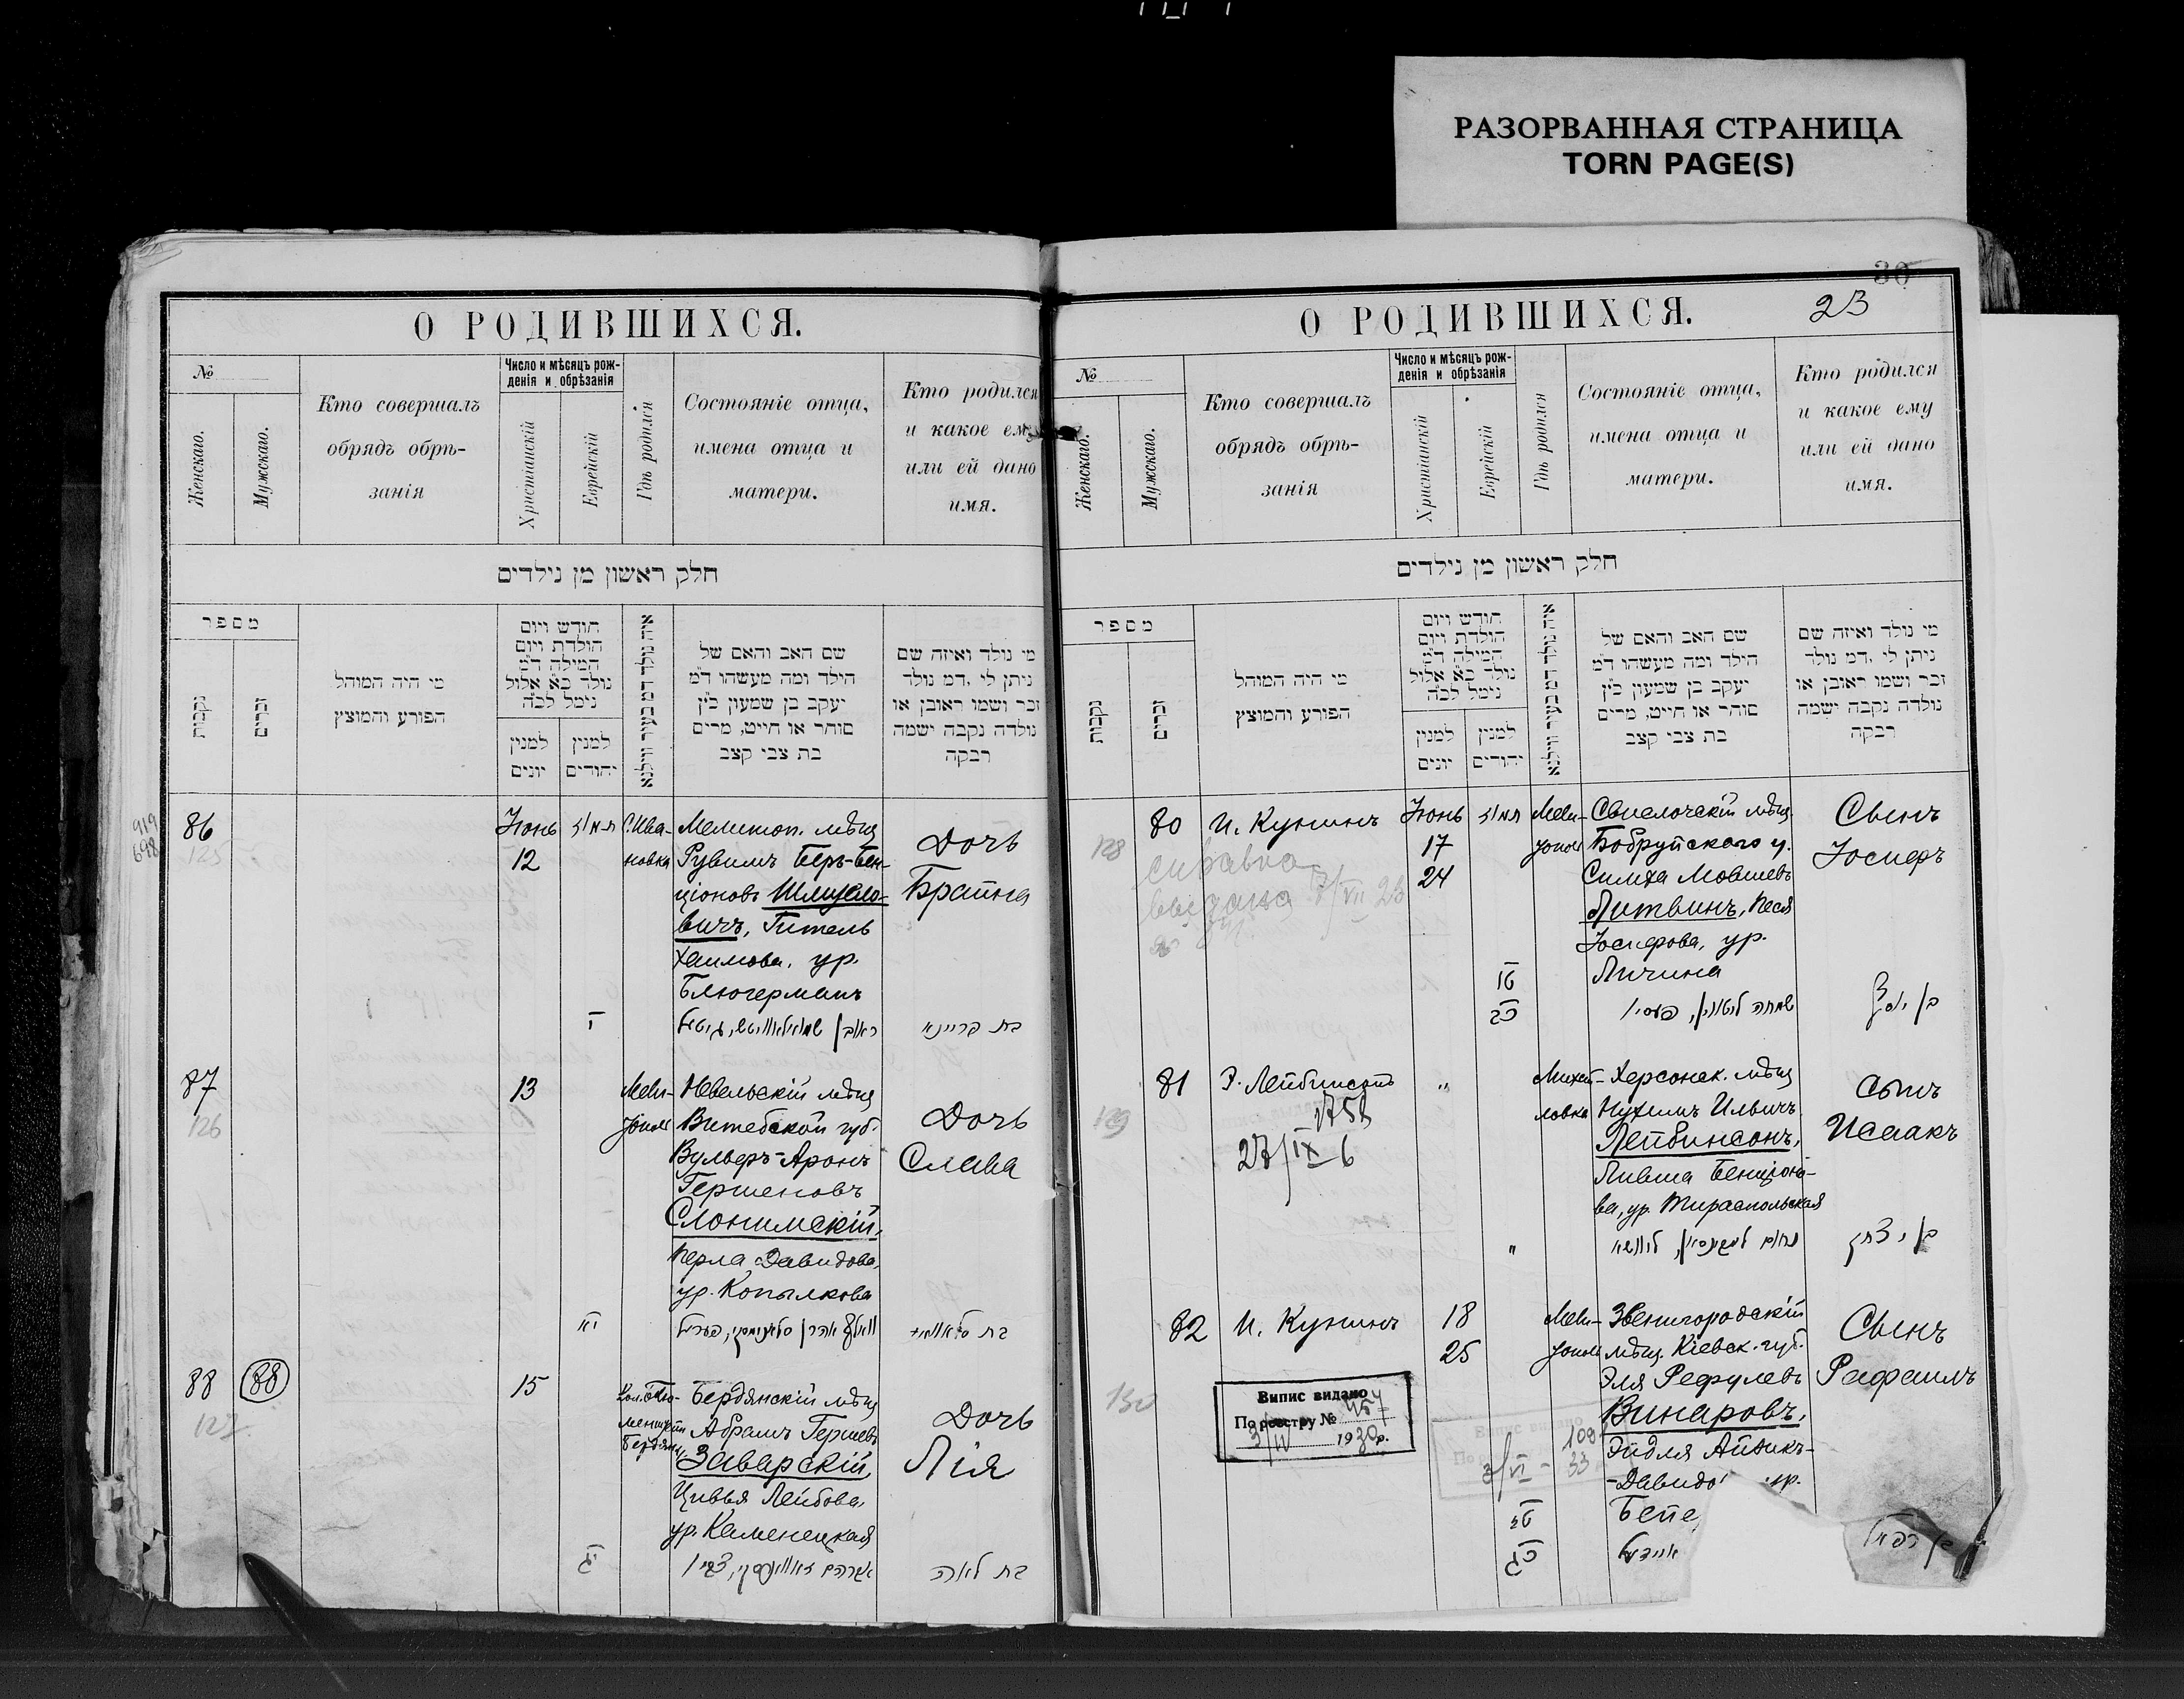 РАЗОРВАННАЯ СТРАНИЦА
TORN PAGE(S)
О РОДИВШИХСЯ.
№
Женскаго.
Мужскаго.
Кто совершалъ
обрядъ обрѣ-
занія
Число и мѣсяцъ рож-
денія и обрѣзанія
Христіанскій
Еврейскій
Гдѣ родился
Состояніе отца,
имена отца и
матери.
Кто родился
и какое ему
или ей дано
имя.
חלק ראשון מן נילדים
מספר
נקבות
זכרים
מי היה המוהל
הפורע והמוצץ
חודש ויום
הולדת ויום
המילה ד״מ
נולד כ״א אלול
נימל לכ״ה
למנין
יונים
למנין
יהודים
שם האב והאם של
הילד ומה מעשהו ד״מ
יעקב בן שמעון כ״ץ
סוחר או חייט, מרים
בת צבי קצב
מי נולד ואיזה שם
ניתן לי ,דמ נולד
זכר ושמו ראובן או
נולדה נקבה ישמה
רבקה
919
698
86
125
Іюнь
12
С. Ива-
новка
Мелитоп. мѣщ
Рувимъ Беръ-Бен-
ціоновъ Шмуело-
вичъ, Гитель
Хаимова, ур.
Блюгерманъ
Дочь
Брайна
י
בת בריינא
87
126
13
Мели-
тополь
Невельскій мѣщ
Витебской губ.
Вульфъ-Аронъ
Гершеновъ
Слонимскій,
Перла Давидова,
ур. Копылкова
Дочь
Слава
יא
88
(88)
127
15
Бердянскій мѣщ
Абрамъ Гершевъ
Заварскій,
Цивья Лейбова,
ур. Каменецкая
Дочь
Лія
יג
בת לאה
30
О РОДИВШИХСЯ.
23
№
Женскаго.
Мужскаго.
Кто совершалъ
обрядъ обрѣ-
занія
Число и мѣсяцъ рож-
денія и обрѣзанія
Христіанскій
Еврейскій
Гдѣ родился
Состояніе отца,
имена отца и
матери.
Кто родился
и какое ему
или ей дано
имя.
חלק ראשון מן נילדים
מספר
נקבות
זכרים
מי היה המוהל
הפורע והמוצץ
חודש ויום
הולדת ויום
המילה ד״מ
נולד כ״א אלול
נימל לכ״ה
למנין
יונים
למנין
יהודים
שם האב והאם של
הילד ומה מעשהו ד״מ
יעקב בן שמעון כ״ץ
סוחר או חייט, מרים
בת צבי קצב
מי נולד ואיזה שם
ניתן לי ,דמ נולד
זכר ושמו ראובן או
נולדה נקבה ישמה
רבקה
80
128
И. Кунинъ
справка
выдана
VII 23
Іюнь
17
24
Мели-
тополь
Свислочскій мѣщ.
Бобруйского у.
Симха Мовшевъ
Литвинъ, Песя
Іосифова, ур.
Личина
Сынъ
Іосифъ
טו
כב
שמחה ליטווין, פעסי
בן יוסף
81
129
Э. Лейбинсонъ
27/IX 6
"
Михай-
ловка
Херсонск. мѣщ
Нухимъ Ильичъ
Лейбинсонъ,
Ливша Бенціоно-
ва, ур. Тираспольская
Сынъ
Исаакъ
"
בן יצחק
82
130
И. Кунинъ
18
25
Мели-
тополь
Звенигородскій
мѣщ. Кіевск. губ.
Эля Рефулевъ
Винаровъ,
Эйдля Айзикъ-
-Давидо ур.
Бепе
Сынъ
Рафаилъ
Випис видано
По реєстру №
1930р.
3/VI - 33
109
טז
כג
איידל
בן רפאל